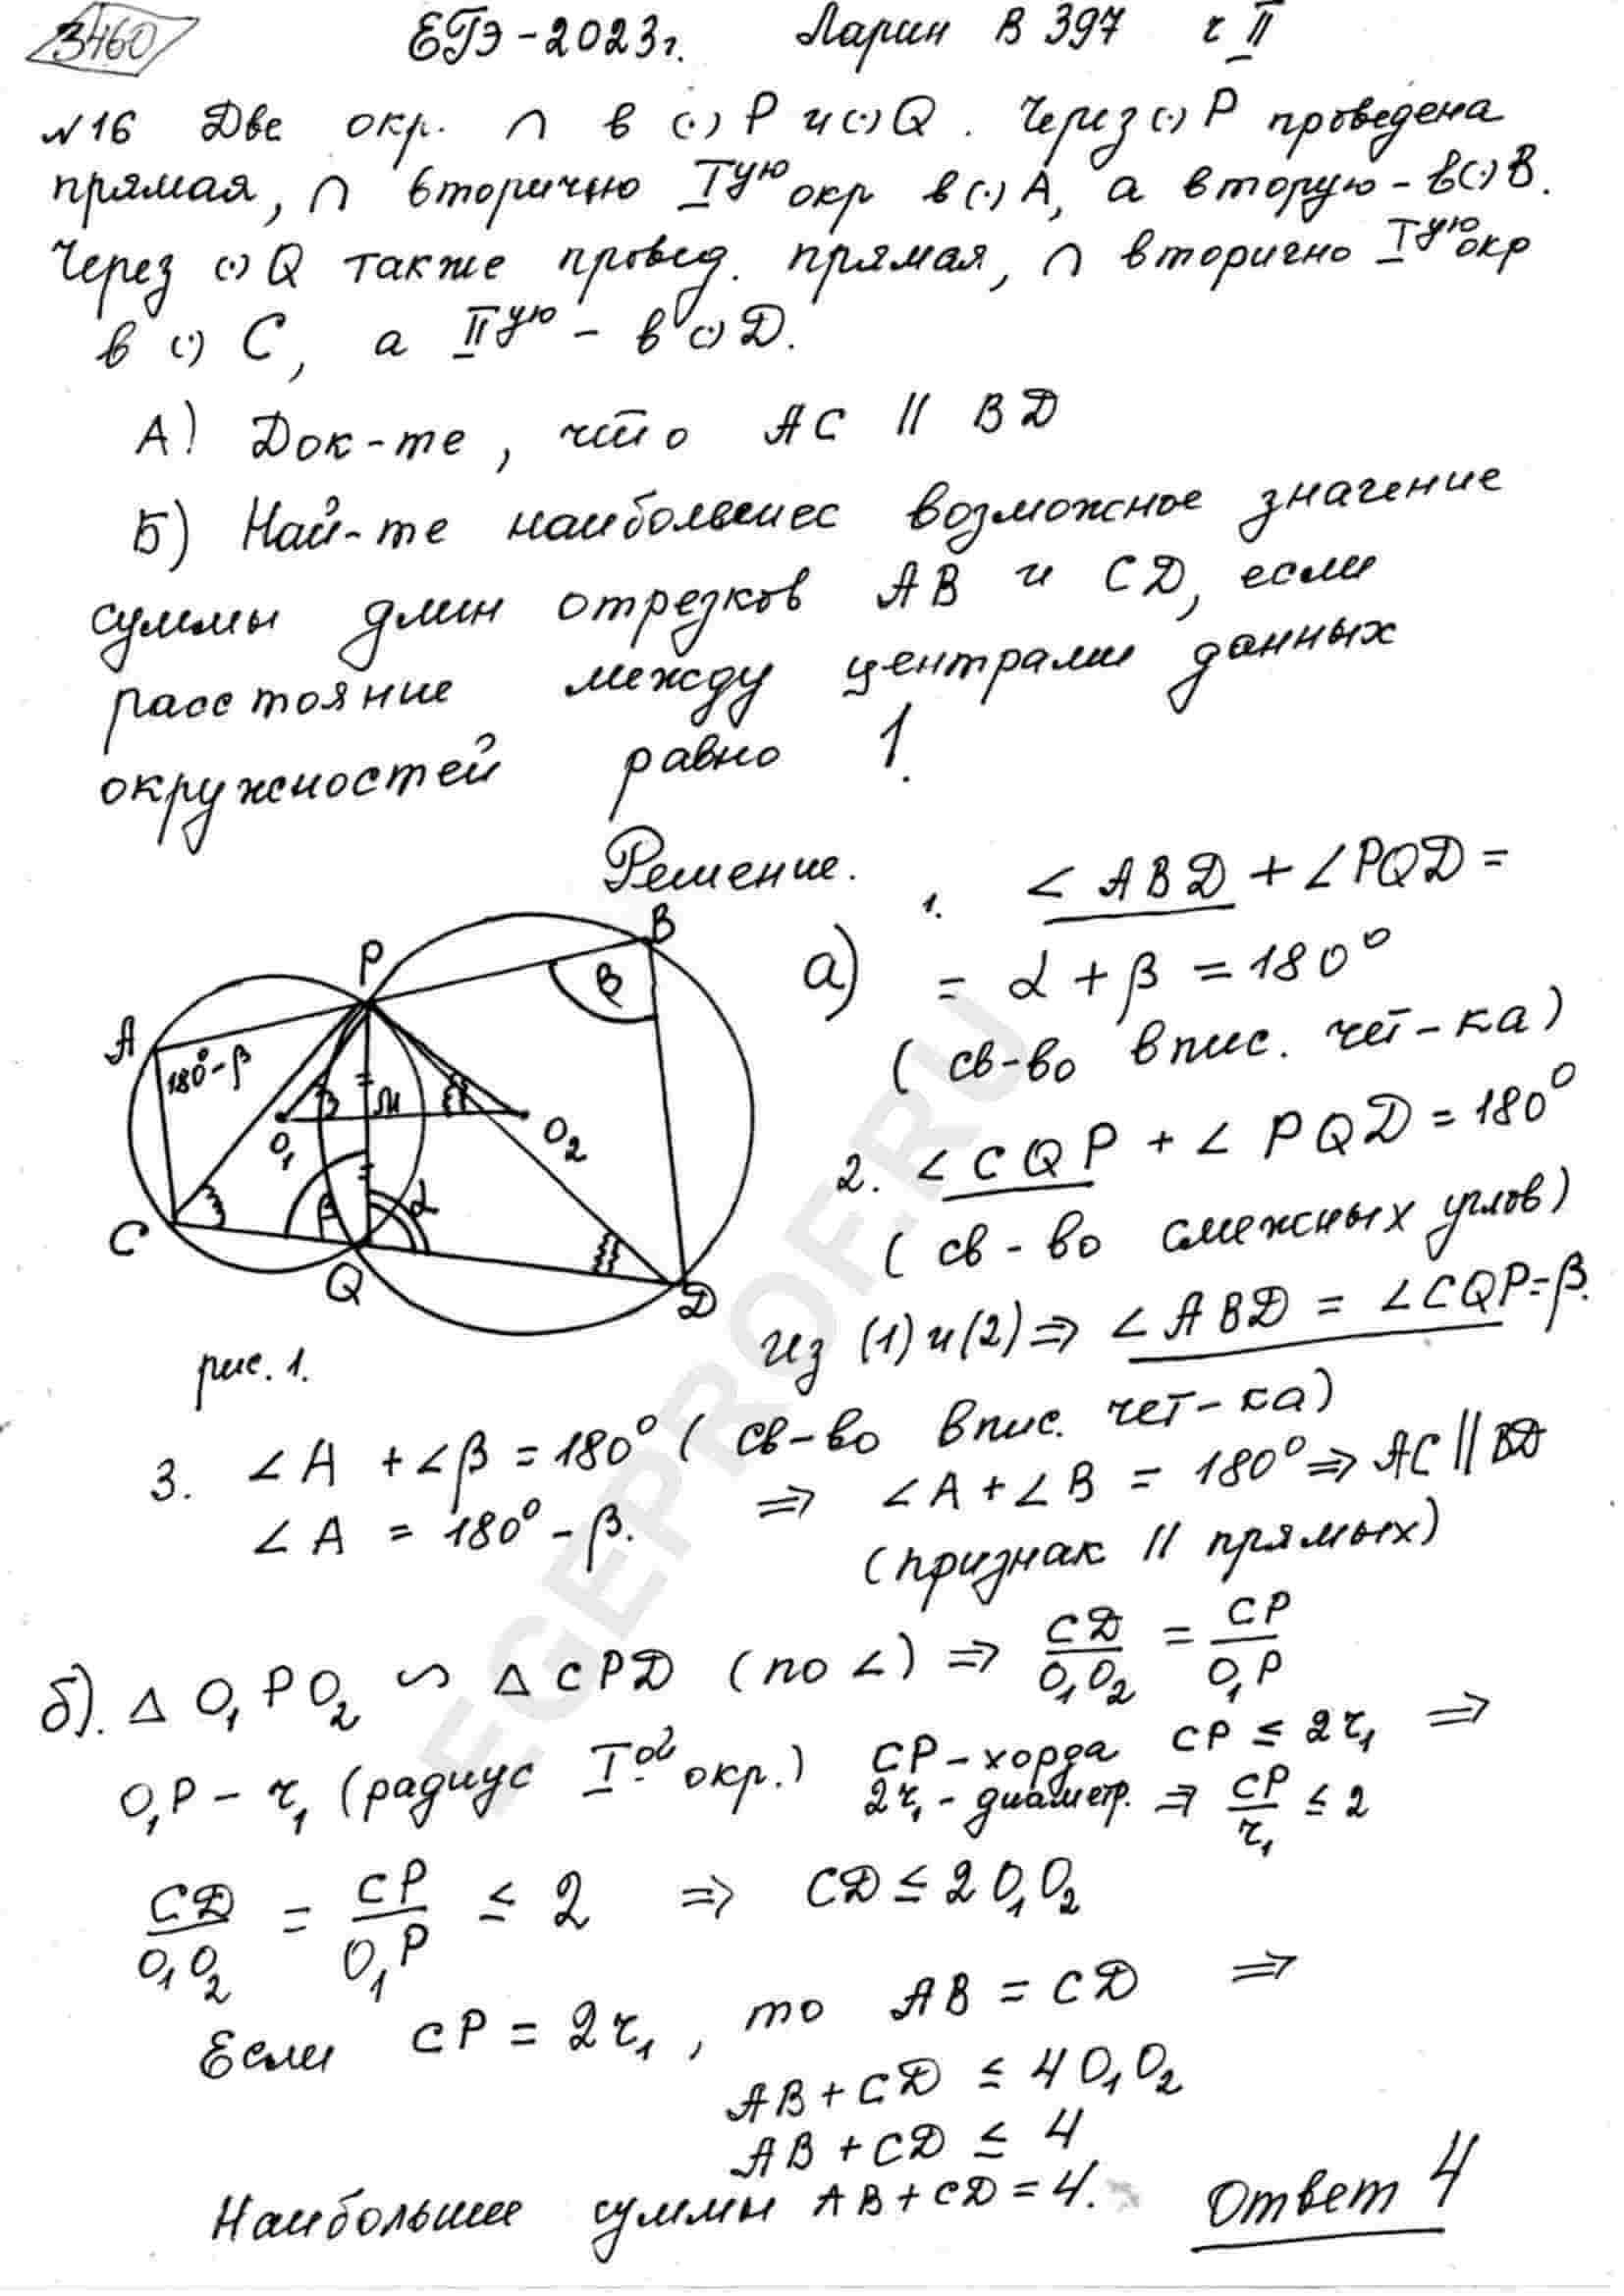 3460 ЕГЭ-2023г. Ларин В 397 ч II
№16 Две окр. ∩ в (·) P и (·) Q. Через (·) P проведена
прямая, ∩ вторично Iую окр в (·) A, а вторую - в (·) B.
Через (·) Q также провед. прямая, ∩ вторично Iую окр
в (·) C, а IIую - в (·) D.
А) Док-те, что AC || BD
Б) Най-те наибольшее возможное значение
суммы длин отрезков AB и CD, если
расстояние между центрами данных
окружностей равно 1.
Решение.
а) 1. ∠ABD + ∠PQD =
= α + β = 180°
(св-во впис. чет-ка)
2. ∠CQP + ∠PQD = 180°
(св-во смежных углов)
из (1) и (2) ⇒ ∠ABD = ∠CQP = β.
P
B
β
A
180°-β
M
O₁
O₂
β
α
C
Q
D
рис. 1.
3. ∠A + ∠β = 180° (св-во впис. чет-ка)
∠A = 180° - β. ⇒ ∠A + ∠B = 180° ⇒ AC || BD
(признак || прямых)
б). △ O₁PO₂ ∽ △ CPD (по ∠) ⇒ CD/O₁O₂ = CP/O₁P
O₁P - r₁ (радиус Iой окр.) CP - хорда CP ≤ 2r₁ ⇒
2r₁ - диаметр. ⇒ CP/r₁ ≤ 2
CD/O₁O₂ = CP/O₁P ≤ 2 ⇒ CD ≤ 2 O₁O₂
Если CP = 2r₁, то AB = CD ⇒
AB + CD ≤ 4 O₁O₂
AB + CD ≤ 4
Наибольшие суммы AB + CD = 4. Ответ 4
EGEPROF.RU